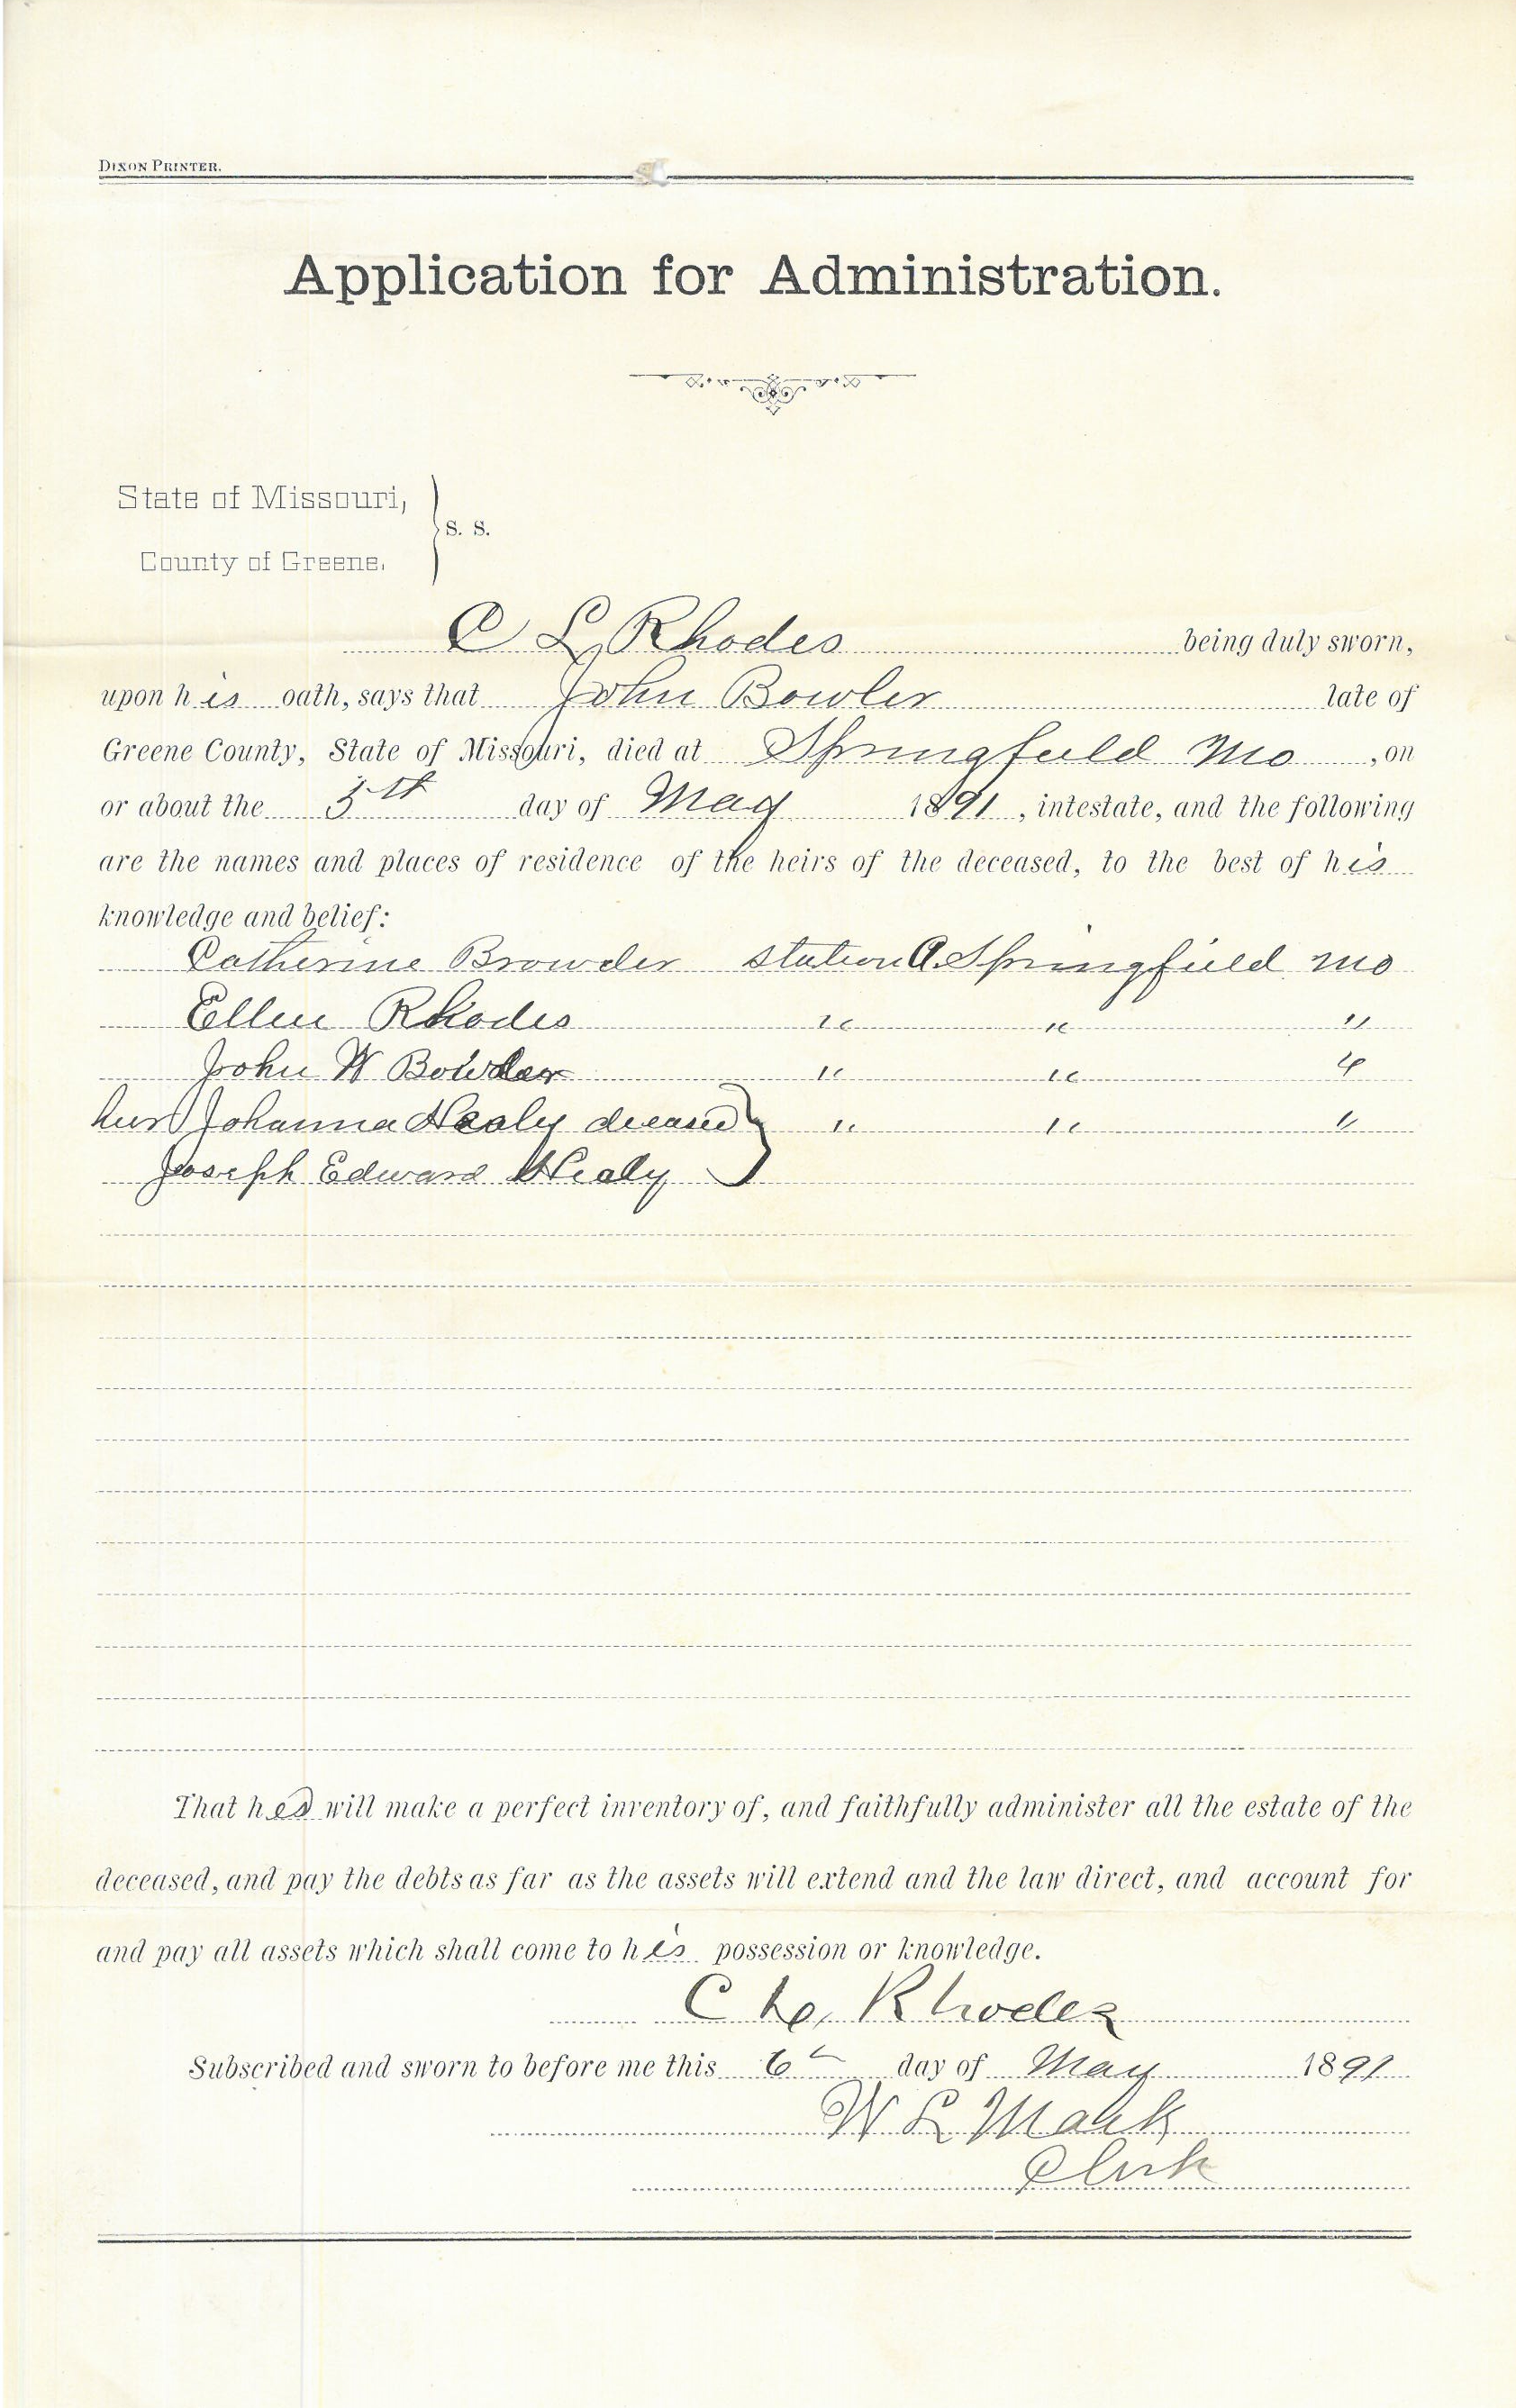 DIXON PRINTER.
Application for Administration.
State of Missouri,
S. S.
County of Greene.
C L Rhodes being duly sworn,
upon his oath, says that John Bowler late of
Greene County, State of Missouri, died at Springfield Mo, on
or about the 5th day of May 1891, intestate, and the following
are the names and places of residence of the heirs of the deceased, to the best of his
knowledge and belief:
Catherine Browder Station A. Springfield Mo
Ellen Rhodes " " "
John W Bowler " " "
Johanna Healy deceased " " "
Joseph Edward Healy
That he will make a perfect inventory of, and faithfully administer all the estate of the
deceased, and pay the debts as far as the assets will extend and the law direct, and account for
and pay all assets which shall come to his possession or knowledge.
C L. Rhodes
Subscribed and sworn to before me this 6th day of May 1891
W L Mack
Clerk